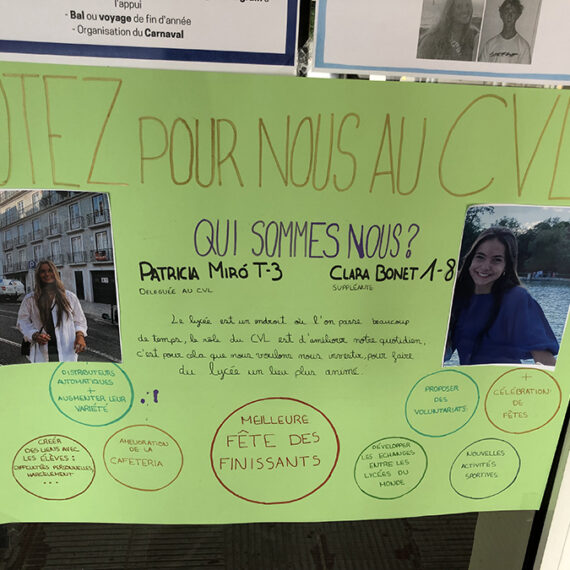 l'appui
- Bal ou voyage de fin d'année
- Organisation du Carnaval
OTEZ POUR NOUS AU CVL
QUI SOMMES NOUS?
PATRICIA MIRÓ T-3
DELEGUÉE AU CVL
CLARA BONET 1-8
SUPPLÉANTE
Le lycée est un endroit où l'on passe beaucoup
de temps, le rôle du CVL est d'améliorer notre quotidien,
c'est pour cela que nous voulons nous investir, pour faire
du lycée un lieu plus animé.
DISTRIBUTEURS
AUTOMATIQUES
+
AUGMENTER LEUR
VARIÉTÉ
PROPOSER
DES
VOLUNTARIATS
+
CÉLÉBRATION
DE
FÊTES
CRÉER
DES LIENS AVEC
LES ÉLÈVES:
DIFFICULTÉS PERSONNELLES
HARCELEMENT
...
AMÉLIORATION
DE LA
CAFETERIA
MEILLEURE
FÊTE DES
FINISSANTS
DÉVELOPPER
LES ECHANGES
ENTRE LES
LYCÉES DU
MONDE
NOUVELLES
ACTIVITÉS
SPORTIVES